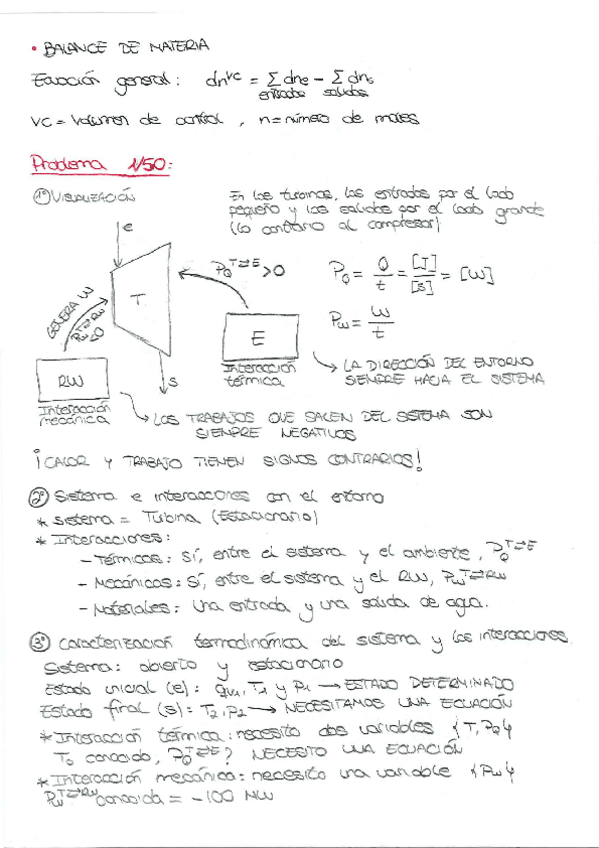 • BALANCE DE MATERIA
Ecuación general: dn^VC = Σ dne - Σ dns
entradas salidas
VC = Volumen de control, n = número de moles
Problema 1/50:
1º VISUALIZACIÓN
En las turbinas, las entradas por el lado
pequeño y las salidas por el lado grande
(lo contrario al compresor)
e
GENERA W
P_W^T⇄RW < 0
T
P_Q^T⇄E > 0
P_Q = Q/t = [J]/[s] = [W]
P_W = W/t
E
Interacción
térmica
RW
Interacción
mecánica
s
→ LA DIRECCIÓN DEL ENTORNO
SIEMPRE HACIA EL SISTEMA
→ LOS TRABAJOS QUE SALEN DEL SISTEMA SON
SIEMPRE NEGATIVOS
¡CALOR Y TRABAJO TIENEN SIGNOS CONTRARIOS!
2º Sistema e interacciones con el entorno
* Sistema = Turbina (Estacionario)
* Interacciones:
- Térmicas: Sí, entre el sistema y el ambiente, P_Q^T⇄E
- Mecánicas: Sí, entre el sistema y el RW, P_W^T⇄RW
- Materiales: Una entrada y una salida de agua.
3º Caracterización termodinámica del sistema y las interacciones.
Sistema: abierto y estacionario
Estado inicial (e): T1 y P1 → ESTADO DETERMINADO
Estado final (s): T2, P2 → NECESITAMOS UNA ECUACIÓN
* Interacción térmica: necesito dos variables {T, PQ}
T0 conocido, P_Q^T⇄E? NECESITO UNA ECUACIÓN
* Interacción mecánica: necesito una variable {PW}
P_W^T⇄RW conocida = -100 MW